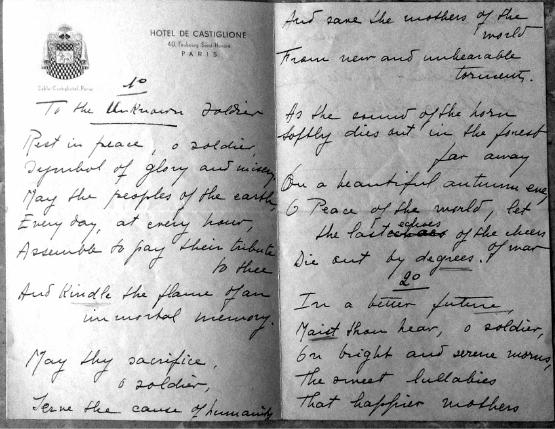 HOTEL DE CASTIGLIONE
40, Faubourg Saint-Honoré
PARIS
1º
To the Unknown Soldier
Rest in peace, o soldier,
Symbol of glory and misery,
May the peoples of the earth,
Every day, at every hour,
Assemble to pay their tribute
to thee
And Kindle the flame of an
immortal memory.
May thy sacrifice,
o soldier,
Serve the cause of humanity
And save the mothers of the
world
From new and unbearable
torments.
As the sound of the horn
Softly dies out in the forest
far away
On a beautiful autumn eve,
O Peace of the world, let
the last echoes of the cheers
of war
Die out by degrees.
2º
In a better future,
Mai'st thou hear, o soldier,
On bright and serene morns,
The sweet lullabies
That happier mothers